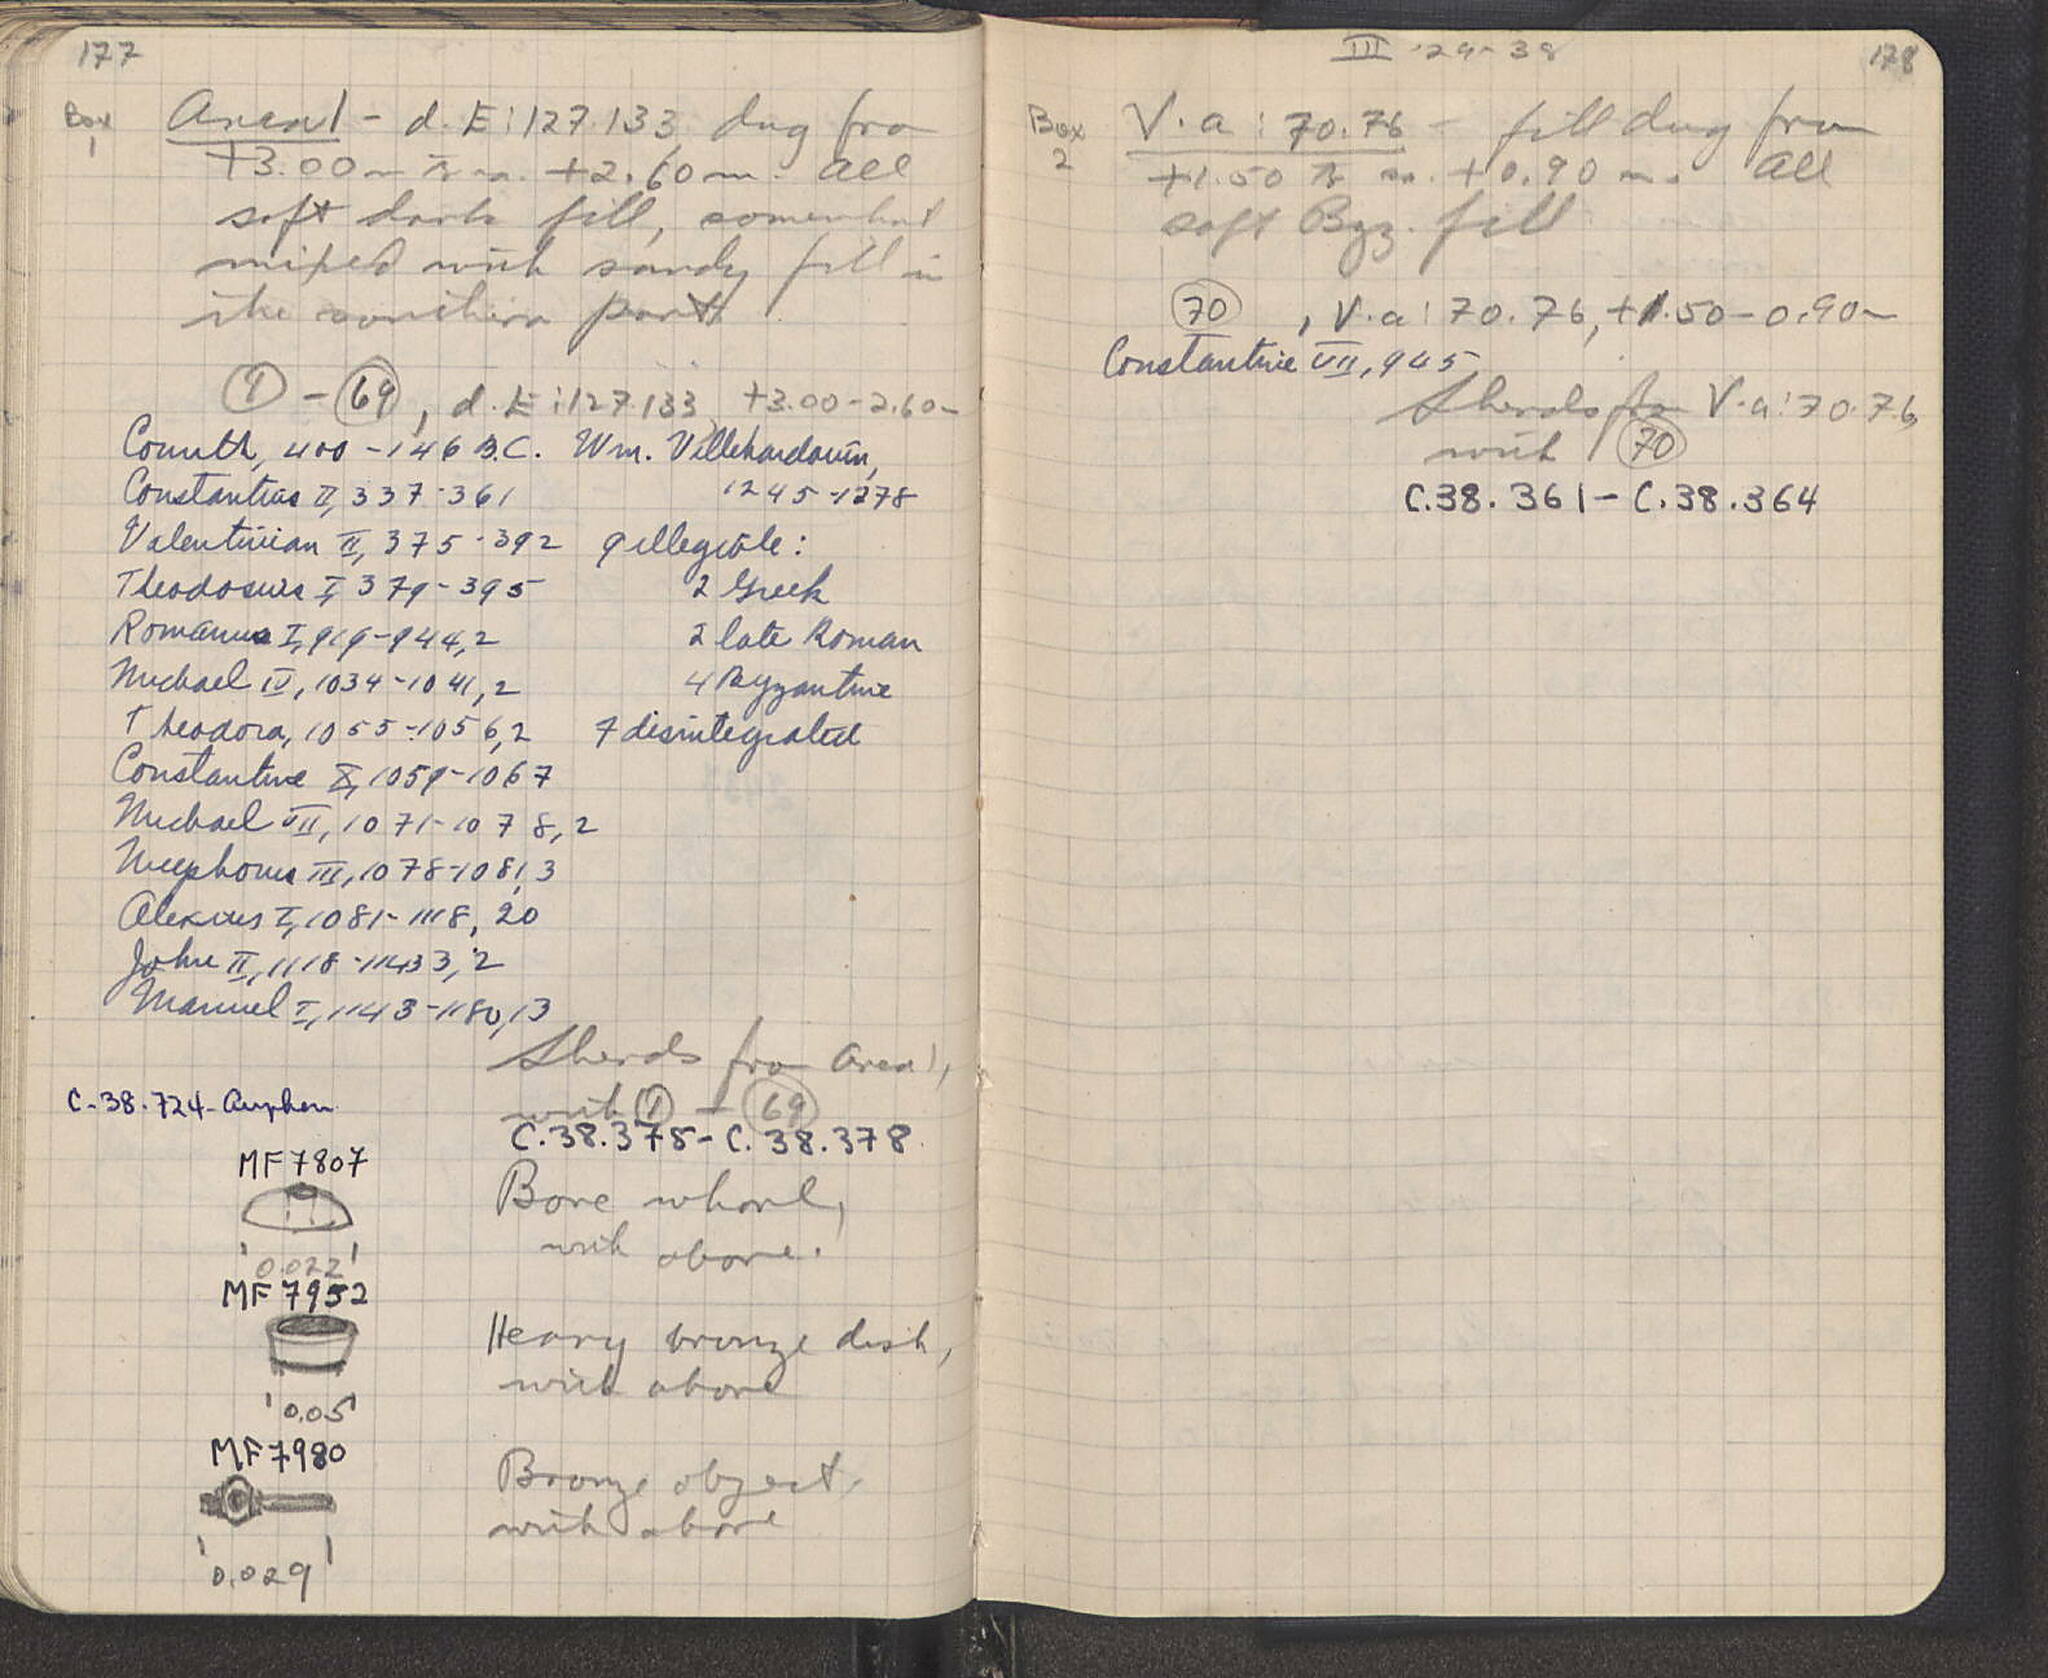 177
Box
1
Area 1 - d.E:127.133, dug from
+3.00m to ca. +2.60m. All
soft dark fill, somewhat
mixed with sandy fill in
the southern part.
1 - 69, d.E:127.133, +3.00-2.60m
Corinth, 400-146 B.C.
Constantius II, 337-361
Valentinian II, 375-392
Theodosius I, 379-395
Romanus I, 919-944, 2
Michael IV, 1034-1041, 2
Theodora, 1055-1056, 2
Constantine X, 1059-1067
Michael VII, 1071-1078, 2
Nicephorus III, 1078-1081, 3
Alexius I, 1081-1118, 20
John II, 1118-1143, 2
Manuel I, 1143-1180, 13
Wm. Villehardouin,
1245-1278
9 illegible:
2 Greek
2 late Roman
4 Byzantine
7 disintegrated
Sherds from Area 1,
with 1 - 69
C.38.375-C.38.378
C-38.724-
MF 7807
0.022
Bone whorl,
with above.
MF 7952
0.05
Heavy bronze dish,
with above
MF 7980
0.029
Bronze object,
with above
III-29-38
178
Box
2
V.a:70.76 - fill dug from
+1.50 to ca. +0.90 m. All
soft Byz. fill
70, V.a:70.76, +1.50-0.90m
Constantine VII, 945
Sherds from V.a:70.76,
with 70
C.38.361-C.38.364